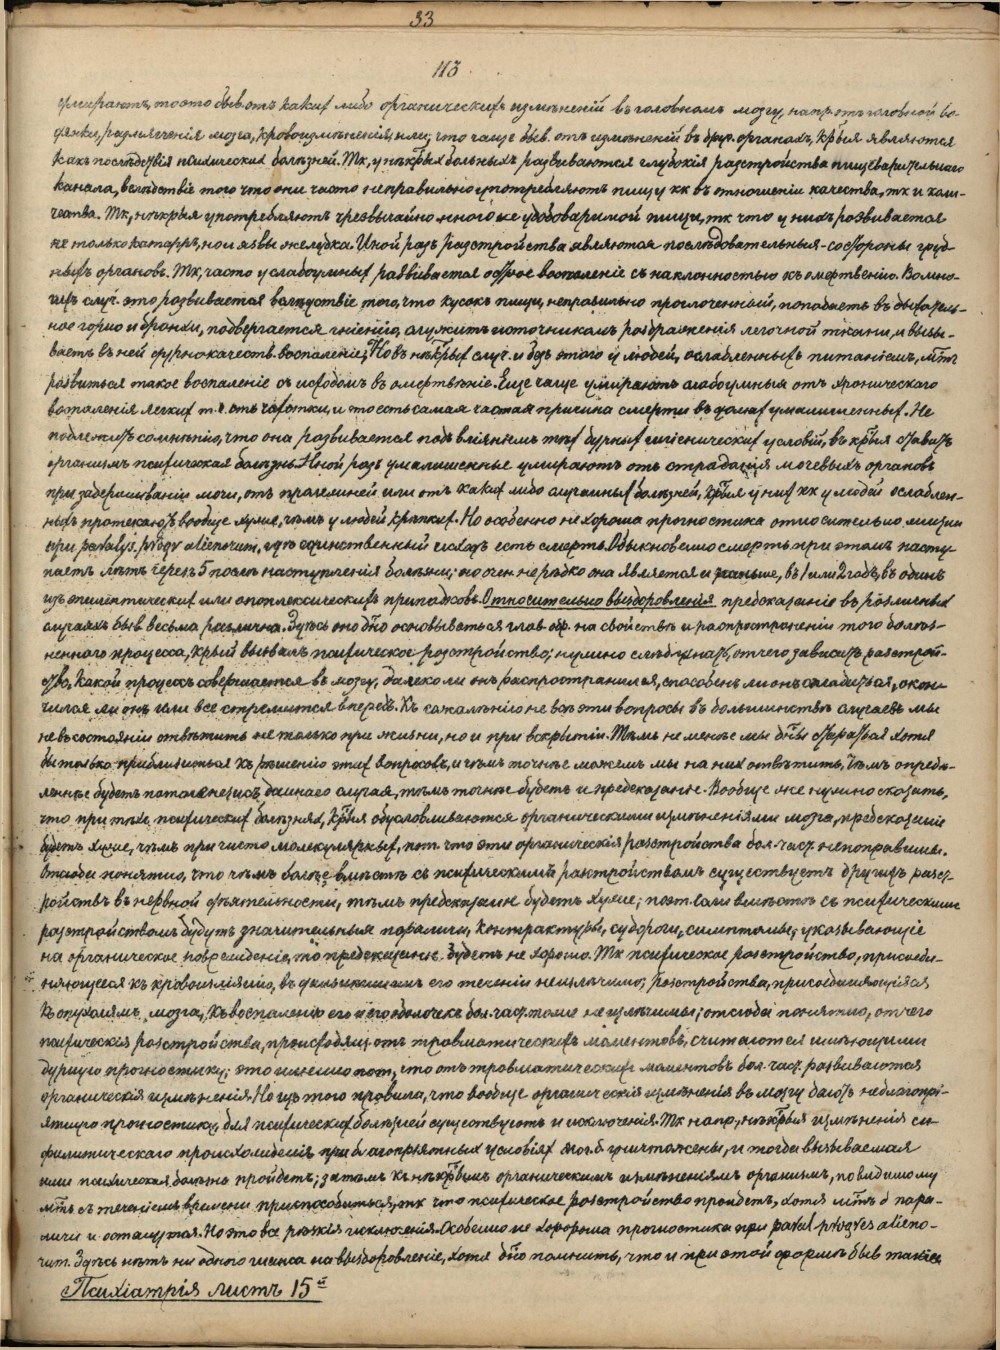 33
113
умираютъ, то это быв. отъ какихъ либо органическихъ измѣненій въ головномъ мозгу, напр. отъ головной во-
дянки, размягченія мозга, кровоизмѣненія, или, что чаще быв. отъ измѣненій въ друг. органахъ, кр҃ыя являются
какъ послѣдствія психическихъ болѣзней. Тк, у нѣкр҃ыхъ больныхъ развиваются глубокія разстройства пищеварительнаго
канала, вслѣдствіе того что они часто неправильно употребляютъ пищу кк въ отношеніи качества, тк и коли-
чества. Тк, нѣкр҃ыя употребляютъ чрезвычайно много не удобоваримой пищи, тк что у нихъ розвивается
не только катарръ, но и язвы желудка. Иной разъ разстройства являются послѣдовательныя - со стороны груд-
ныхъ органовъ. Тк, часто у слабоумныхъ развивается острое воспаленіе съ наклонностью къ омертвенію. Во мно-
гихъ случ. это розвивается вслѣдствіе того, что кусокъ пищи, неправильно проглоченный, попадаетъ въ дыхатель-
ное горло и бронхи, подвергается гніенію, служитъ источникомъ роздраженія легочной ткани, и вызы-
ваетъ въ ней дурнокачеств. воспаленіе. Но въ нѣкр҃ыхъ случ. и безъ этого у людей, ослабленныхъ питаніемъ, м҃тъ
розвиться такое воспаленіе съ исходомъ въ омертвѣніе. Еще чаще умираютъ слабоумныя отъ хроническаго
воспаленія легкихъ т. е. отъ чахотки, и то есть самая частая причина смерти въ домахъ умалишенныхъ. Не
подлежитъ сомнѣнію, что она развивается подъ вліяніемъ тѣхъ дурныхъ гигіеническихъ условій, въ кр҃ыя ставитъ
организмъ психическая болѣзнь. Иной разъ умалишенные умираютъ отъ страданія мочевыхъ органовъ
при задерживаніи мочи, отъ пролежней или отъ какихъ либо случайныхъ болѣзней, кр҃ыя у нихъ кк у людей ослаблен-
ныхъ протекаютъ вообще хуже, чѣмъ у людей крѣпкихъ. Но особенно не хороша прогностика относительно жизни
при paralys. progr. alienorum, гдѣ единственный исходъ есть смерть. Обыкновенно смерть при этомъ насту-
паетъ лѣтъ черезъ 5 послѣ наступленія болѣзни; но очен. не рѣдко она является и раньше, въ 1 или 2 года, въ одинъ
изъ эпилептическихъ или апоплексическихъ припадковъ. Относительно выздоровленія предсказаніе въ розличныхъ
случаяхъ быв. весьма различно. Здѣсь оно д҃но основываться глав. обр. на свойствѣ и распространеніи того болѣз-
неннаго процесса, кр҃ый вызвалъ психическое розстройство; нужно слѣд. узнать, отчего зависитъ разстрой-
ство, какой процессъ совершается въ мозгу, далеко ли онъ распространился, способенъ ли онъ сгладиться, окон-
чился ли онъ или все стремится впередъ. Къ сожалѣнію не всѣ эти вопросы въ большинствѣ случаевъ мы
не въ состояніи отвѣтить не только при жизни, но и при вскрытіи. Тѣмъ не менѣе мы д҃ны стараться хотя
бы только приблизиться къ рѣшенію этихъ вопросовъ, и чѣмъ точнѣе можемъ мы на них отвѣтить, чѣмъ опредѣ-
леннѣе будетъ патогенезисъ даннаго случая, тѣмъ точнѣе будетъ и предсказаніе. Вообще же нужно сказать,
что при тѣхъ психическихъ болѣзняхъ, кр҃ыя обусловливаются органическими измѣненіями мозга, предсказаніе
будетъ хуже, чѣмъ при чисто молекулярныхъ, пот. что эти органическія разстройства бол. част. непоправимы.
Отсюда понятно, что чѣмъ болѣе вмѣстѣ съ психическимъ разстройствомъ существуетъ другихъ разст-
ройствъ въ нервной дѣятельности, тѣмъ предсказаніе будетъ хуже; поэт. если вмѣстѣ съ психическимъ
розстройствомъ будутъ значительныя параличи, контрактуры, судороги, симптомы, указывающіе
на органическое поврежденіе, то предсказаніе будетъ не хорошо. Тк психическое розстройство, присоеди-
няющееся къ кровоизліянію, въ дальнѣйшемъ его теченіи неизлѣчимо; розстройства, присоединяющіяся
къ опухолямъ мозга, къ воспаленію его и его оболочекъ бол. част. тоже не излѣчимы; отсюда понятно, отчего
психическія розстройства, происходящ. отъ травматическихъ моментовъ, считаются имѣющими
дурную прогностику; это именно пот., что отъ травматическихъ моментовъ бол. част. развиваются
органическія измѣненія. Но изъ того правила, что вообще органическія измѣненія въ мозгу даютъ неблагопрі-
ятную прогностику, для психическихъ болѣзней существуютъ и исключенія. Тк напр., нѣкр҃ыя измѣненія си-
филитическаго происхожденія при благопріятныхъ условіяхъ мог. б. уничтожены, и тогда вызываемая
ими психическая болѣзнь пройдетъ; затѣмъ къ нѣкр҃ымъ органическимъ измѣненіямъ организмъ, повидимому
м҃тъ съ теченіемъ времени приспособиться, тк что психическое розстройство пройдетъ, хотя м҃тъ б. пара-
личи и останутся. Но это все рѣдкія исключенія. Особенно не хороша прогностика при paral. progres. alieno-
rum. Здѣсь нѣтъ ни одного шанса на выздоровленіе, хотя д҃но помнить, что и при этой формѣ быв. такіе
Психіатрія листъ 15й